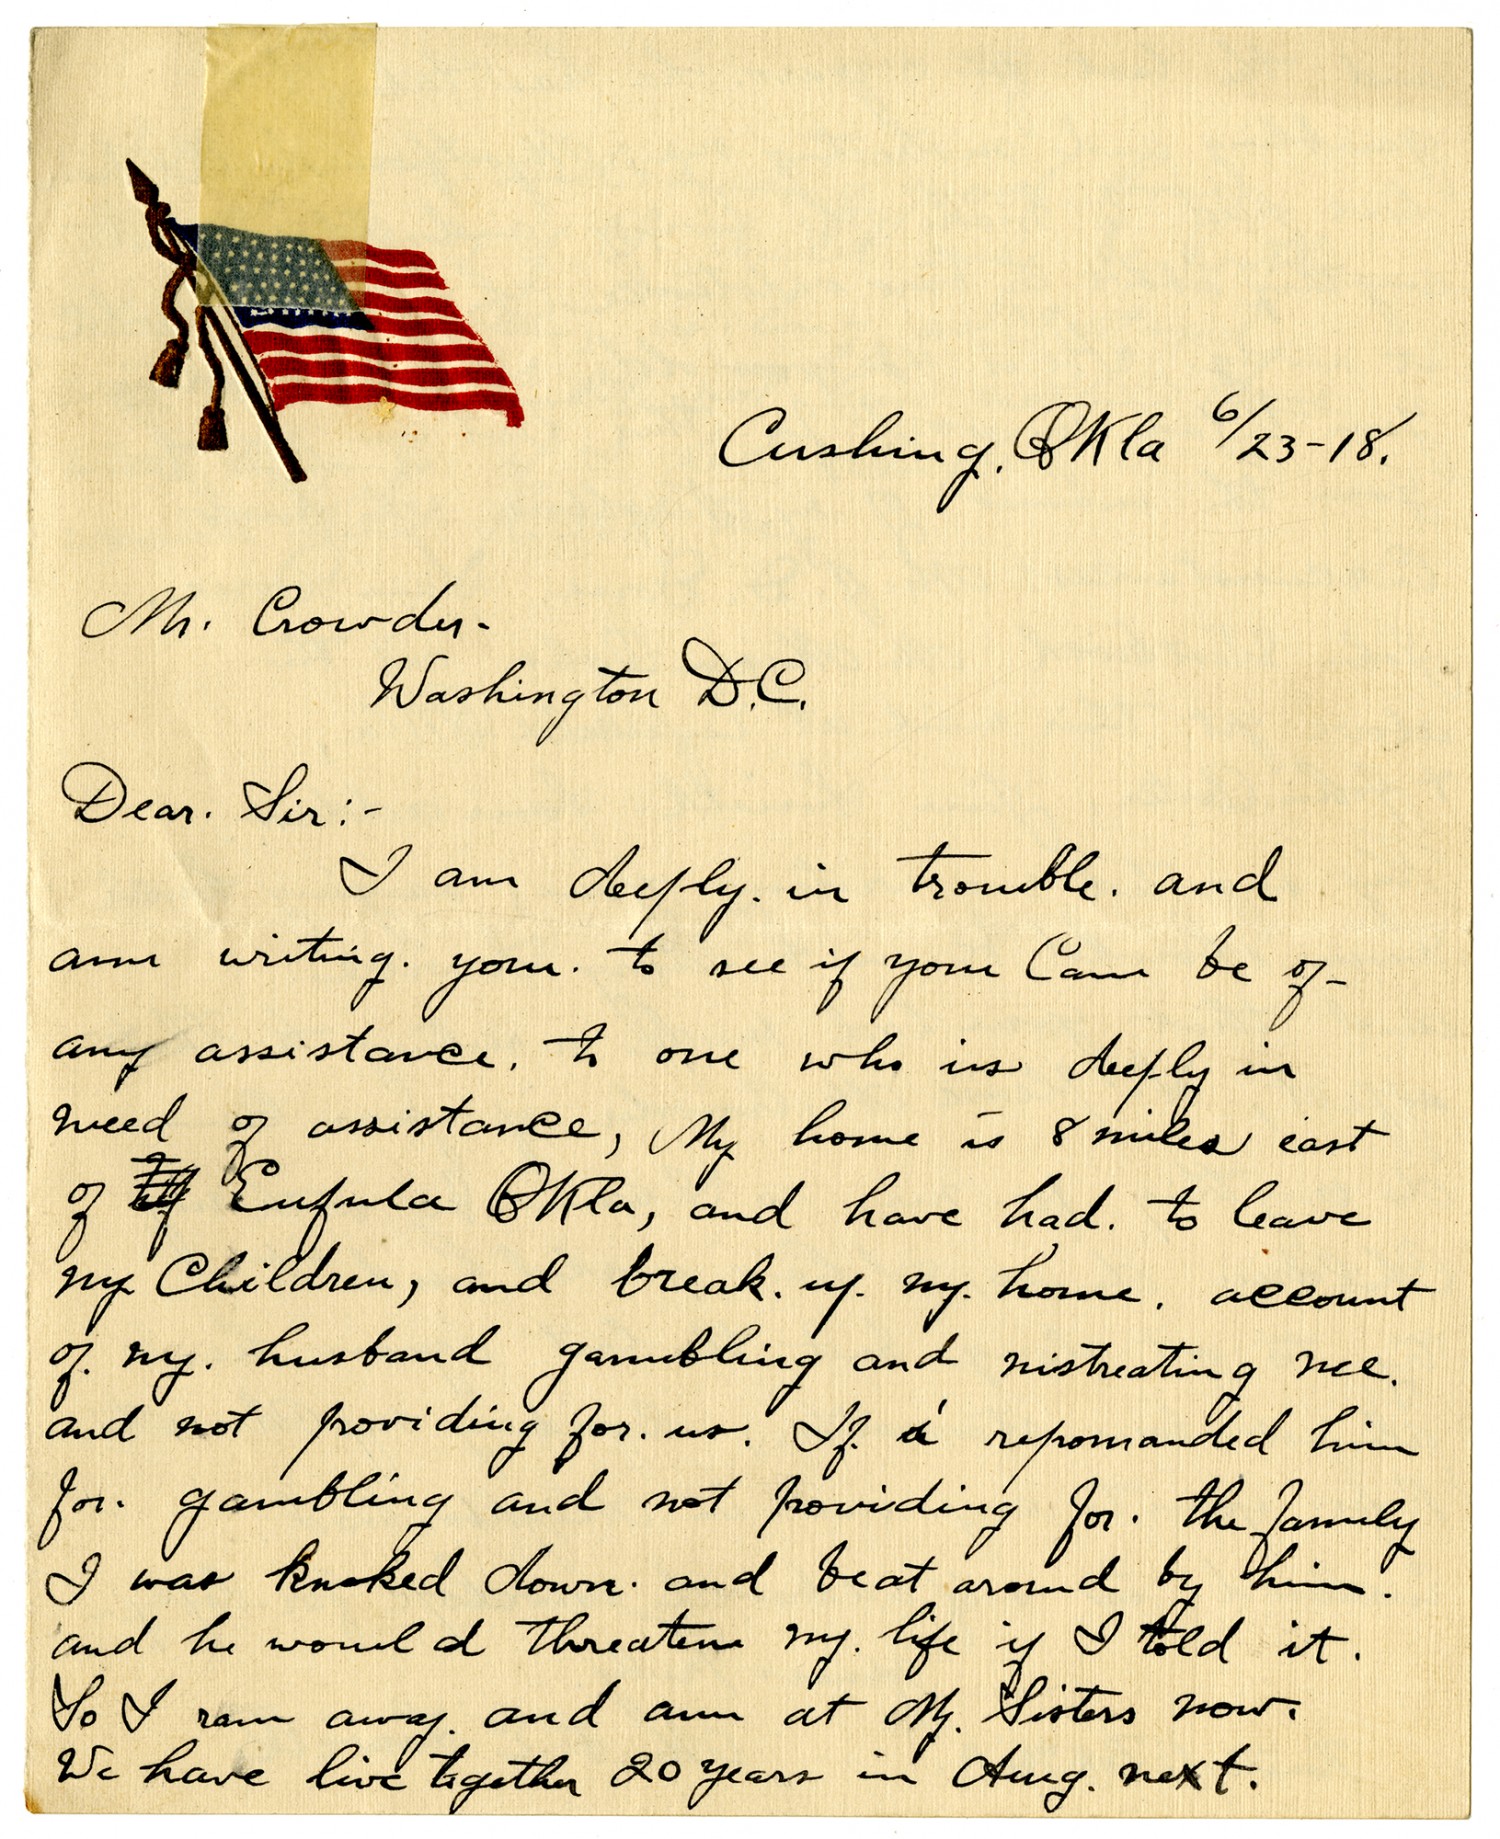 Cushing, Okla 6/23-18.
Mr. Crowder-
Washington D.C.
Dear. Sir:-
I am deeply. in trouble. and
am writing. you. to see if you Can be of-
any assistance. to one who is deeply in
need of assistance, My home is 8 miles east
of Eufula Okla, and have had. to leave
my Children, and break. up. my. home. account
of. my. husband gambling and mistreating me.
and not providing for. us. If. i repomanded him
for. gambling and not providing for. the family
I was knoked down. and beat around by him.
and he would threaten my. life if I told it.
So I ran away. and am at My. Sisters now.
We have live together 20 years in Aug. next.